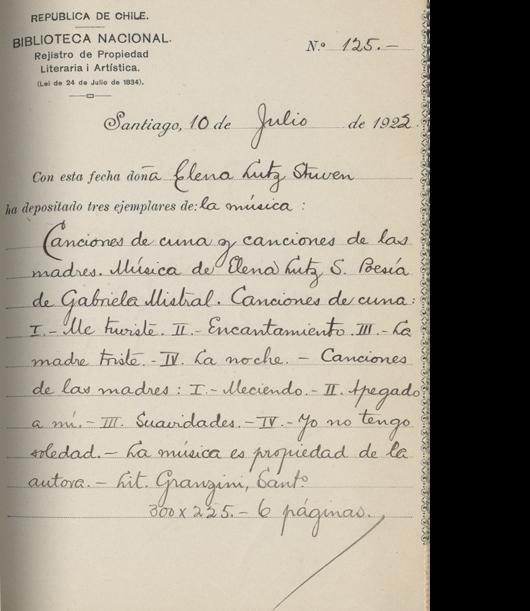 REPUBLICA DE CHILE.
BIBLIOTECA NACIONAL.
Rejistro de Propiedad
Literaria i Artística.
(Lei de 24 de Julio de 1834).
N.º 125.-
Santiago, 10 de Julio de 1922.
Con esta fecha doña Elena Lutz Stuven
ha depositado tres ejemplares de: la música :
Canciones de cuna y canciones de las
madres. Música de Elena Lutz S. Poesía
de Gabriela Mistral. Canciones de cuna:
I.- Me tuviste. II.- Encantamiento. III.- La
madre triste. - IV. La noche. - Canciones
de las madres : I.- Meciendo. - II. Apegado
a mí. - III. Suavidades. - IV. - Yo no tengo
soledad. - La música es propiedad de la
autora. - Lit. Granzini, Santº
300 x 225. - 6 páginas.